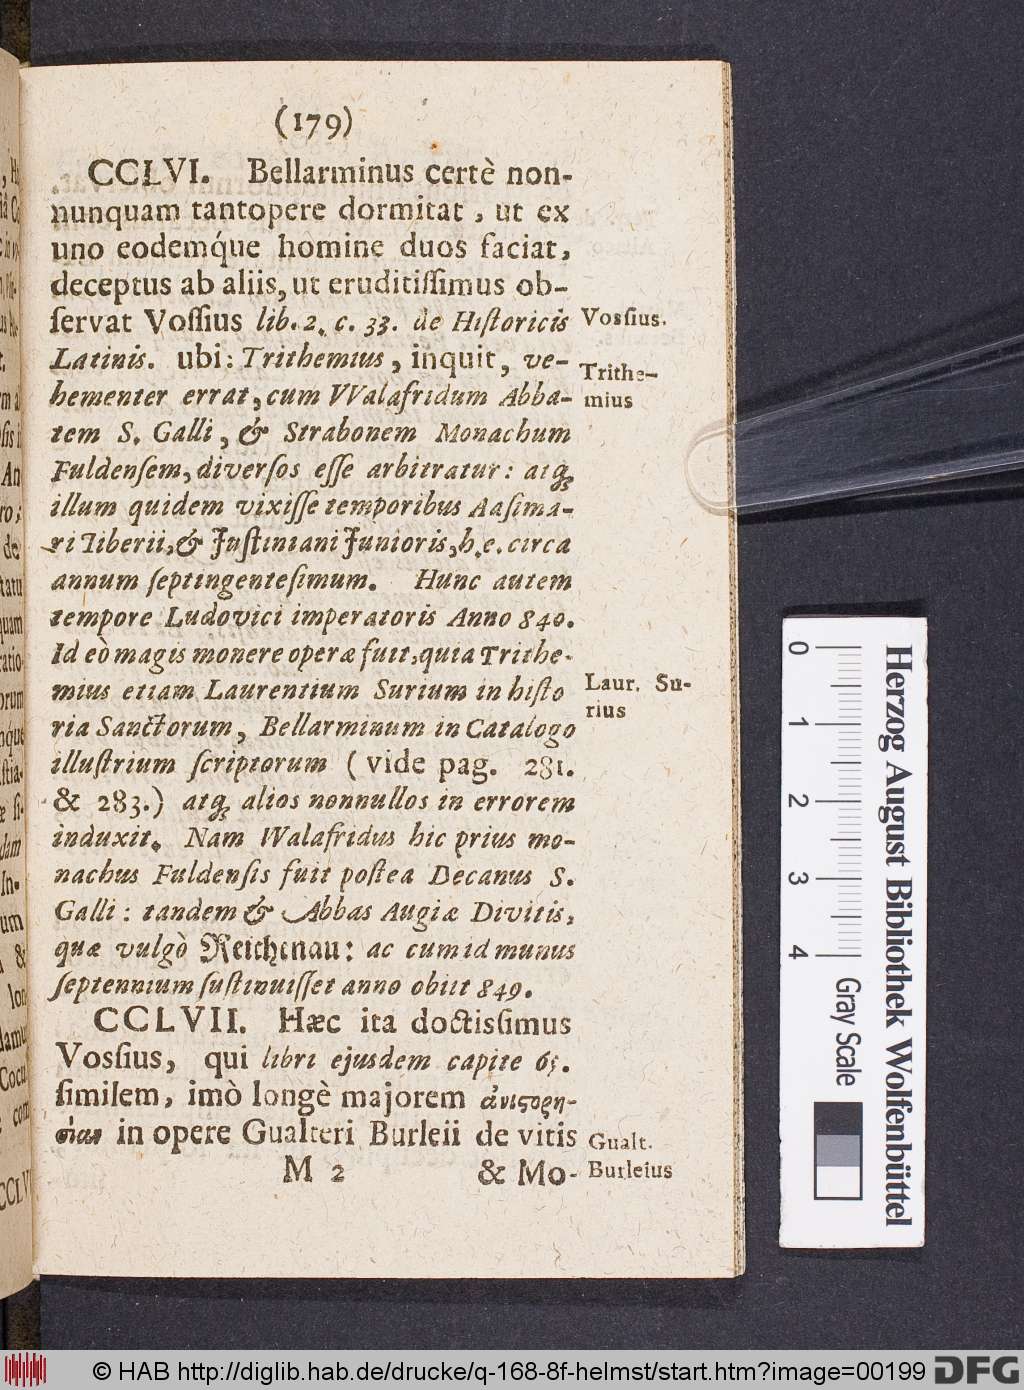 (179)
CCLVI. Bellarminus certè non-
nunquam tantopere dormitat, ut ex
uno eodemq́ue homine duos faciat,
deceptus ab aliis, ut eruditiſſimus ob-
ſervat Voſſius lib. 2. c. 33. de Hiſtoricis
Vosſius.
Latinis. ubi: Trithemius, inquit, ve-
Trithe-
hementer errat, cum VValafridum Abba-
mius
tem S. Galli, & Strabonem Monachum
Fuldenſem, diverſos eſſe arbitratur: atq;
illum quidem vixiſſe temporibus Aaſima-
ri Tiberii, & Juſtiniani Junioris, h. e. circa
annum ſeptingenteſimum. Hunc autem
tempore Ludovici imperatoris Anno 840.
Id eò magis monere operæ fuit, quia Trithe-
mius etiam Laurentium Surium in hiſto
Laur. Su-
rius
ria Sanctorum, Bellarminum in Catalogo
illuſtrium ſcriptorum (vide pag. 281.
& 283.) atq; alios nonnullos in errorem
induxit. Nam Walafridus hic prius mo-
nachus Fuldenſis fuit poſtea Decanus S.
Galli: tandem & Abbas Augiæ Divitis,
quæ vulgò Reichenau: ac cum id munus
ſeptennium ſuſtinuiſſet anno obiit 849.
CCLVII. Hæc ita doctisſimus
Vosſius, qui libri ejusdem capite 65.
ſimilem, imò longè majorem ἀνιϛορη-
σίαν in opere Gualteri Burleii de vitis
Gualt.
Burleius
M 2 & Mo-
0 1 2 3 4
Gray Scale
Herzog August Bibliothek Wolfenbüttel
© HAB http://diglib.hab.de/drucke/q-168-8f-helmst/start.htm?image=00199
DFG